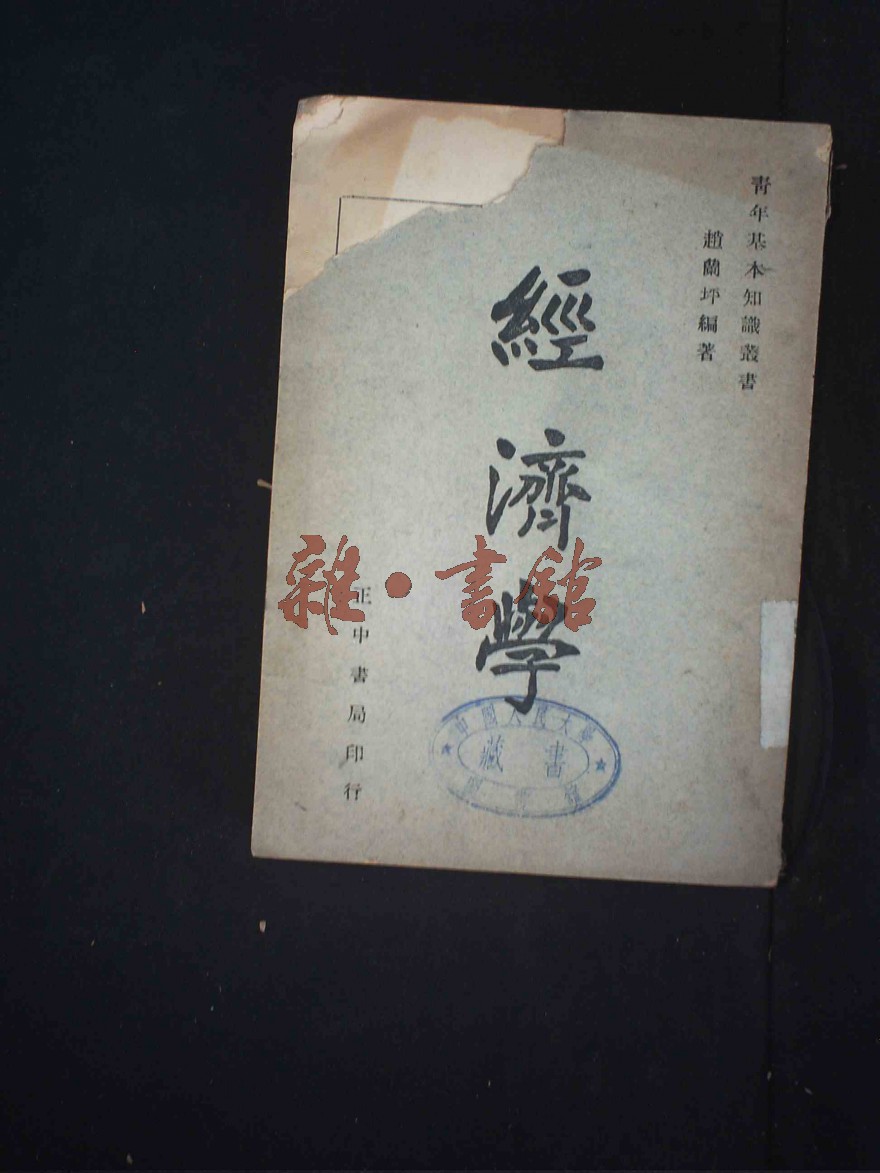 青年基本知識叢書
趙蘭坪編著
經濟學
正中書局印行
雜·書館
中國人民大學
藏書
圖書館